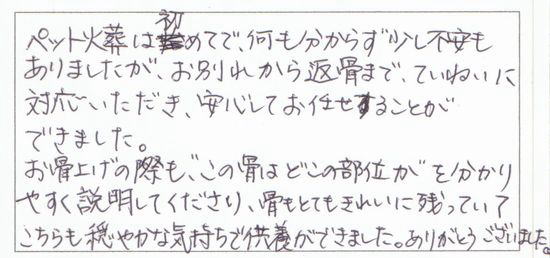 ペット火葬は初めてで、何も分からず少し不安も
ありましたが、お別れから返骨まで、ていねいに
対応いただき、安心してお任せすることが
できました。
お骨上げの際も、“この骨はどこの部位か”を分かり
やすく説明してくださり、骨もとてもきれいに残っていて
こちらも穏やかな気持ちで供養ができました。ありがとうございました。